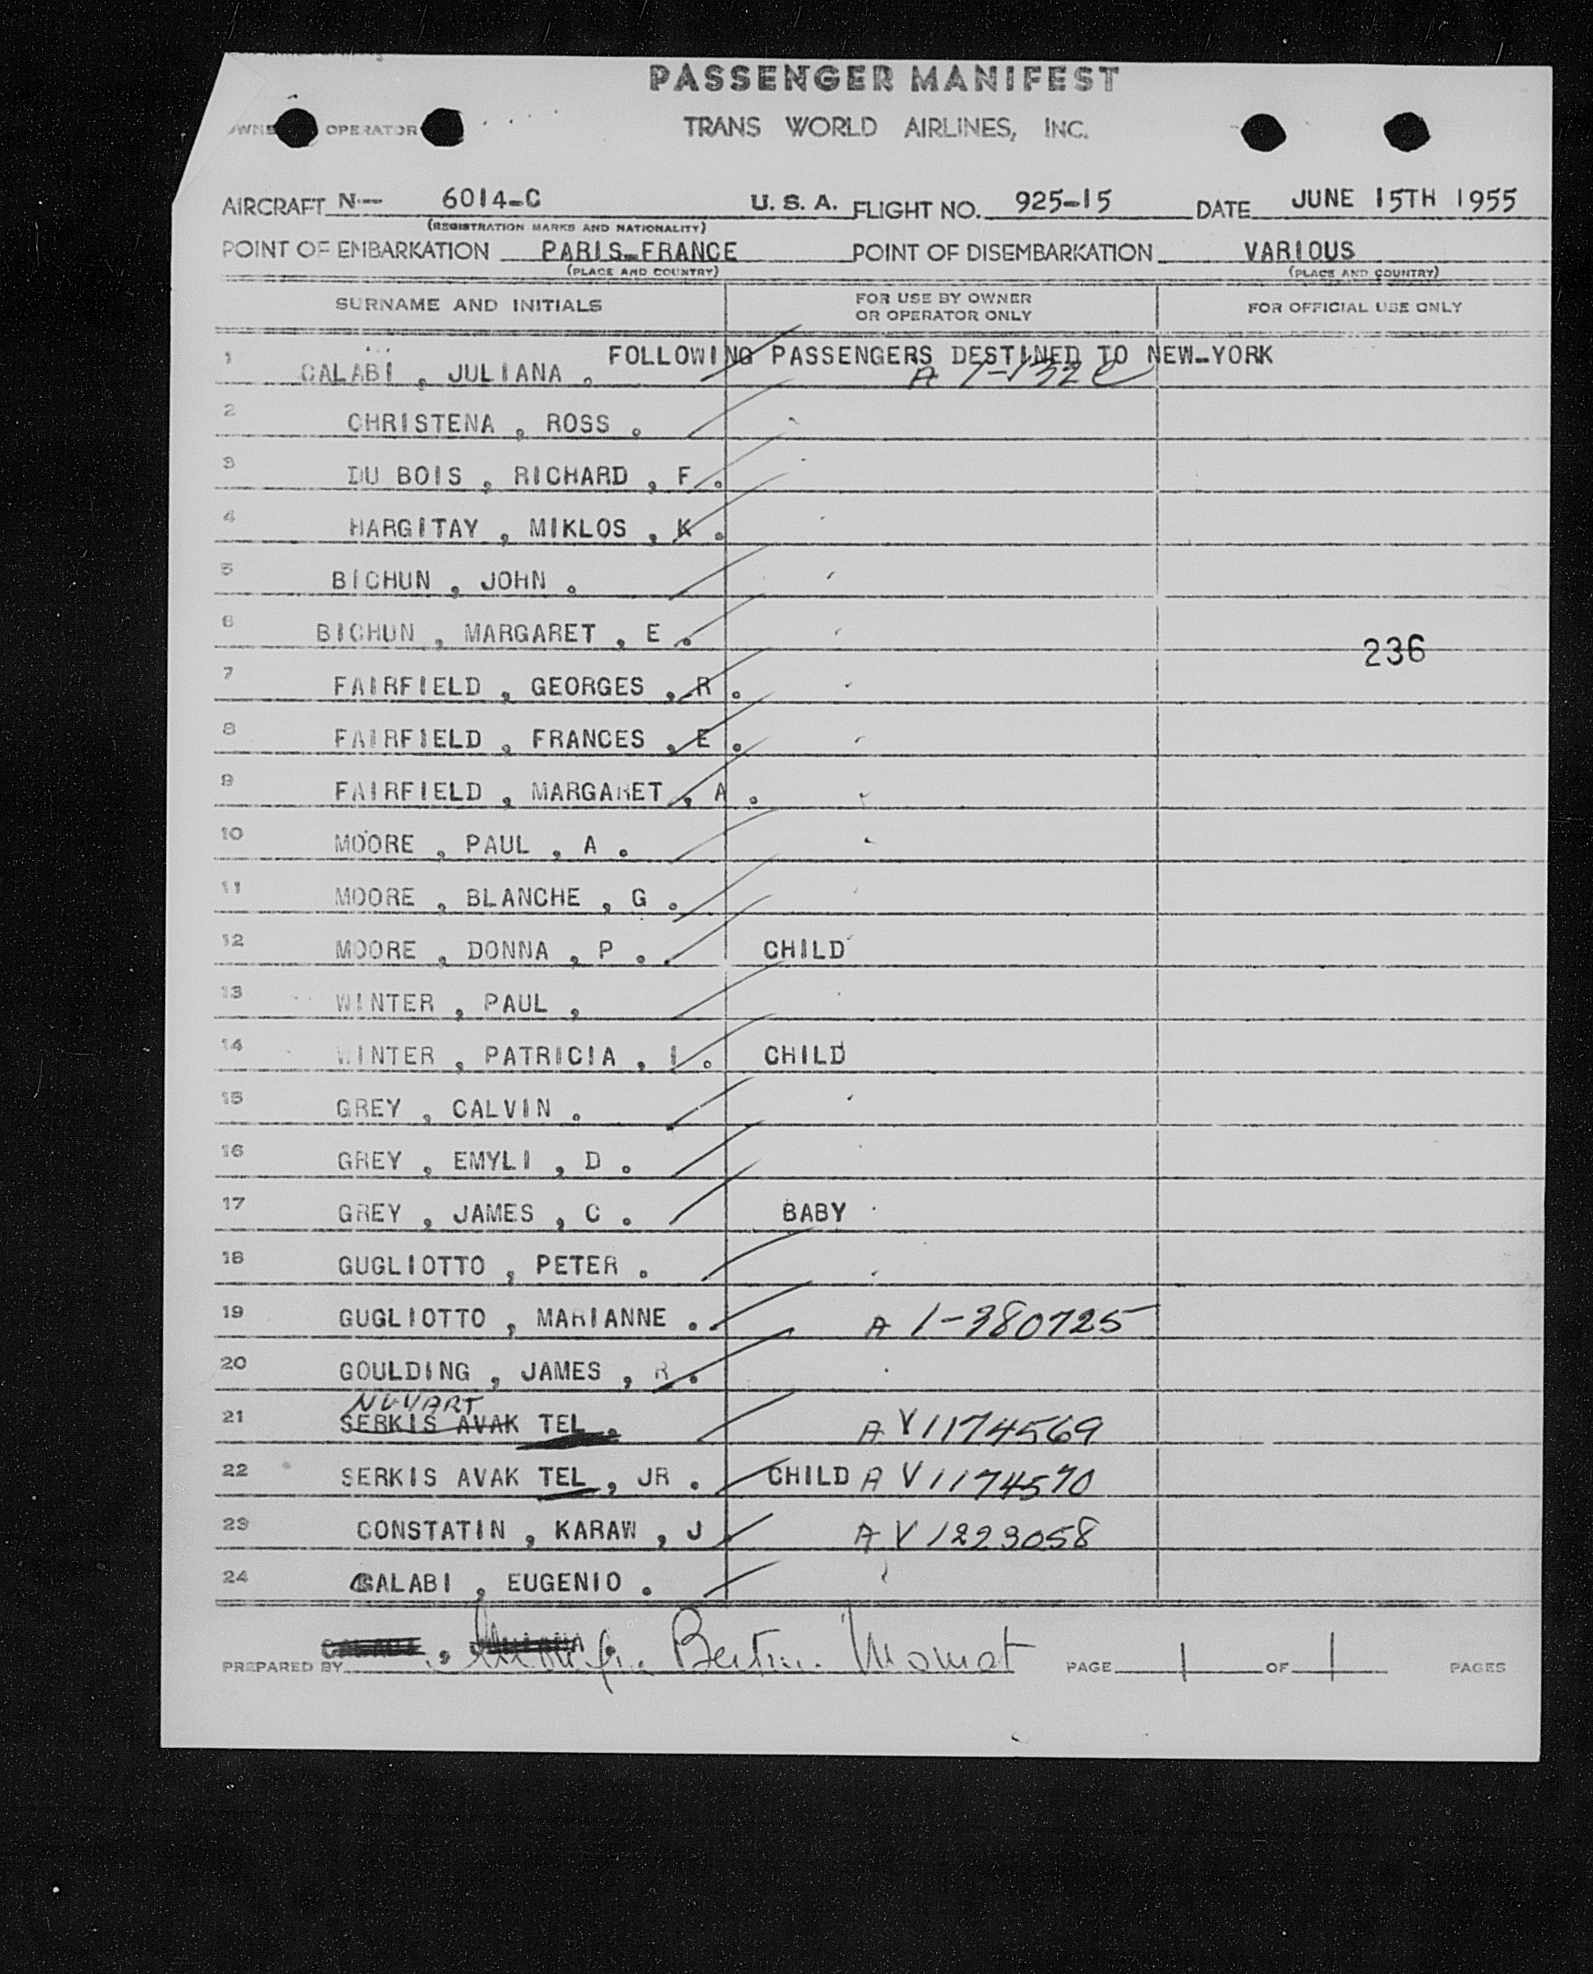 PASSENGER MANIFEST
OPERATOR TRANS WORLD AIRLINES, INC.
AIRCRAFT N-- 6014-C U. S. A. FLIGHT NO. 925-15 DATE JUNE 15TH 1955
(REGISTRATION MARKS AND NATIONALITY)
POINT OF EMBARKATION PARIS-FRANCE POINT OF DISEMBARKATION VARIOUS
(PLACE AND COUNTRY) (PLACE AND COUNTRY)
SURNAME AND INITIALS FOR USE BY OWNER OR OPERATOR ONLY FOR OFFICIAL USE ONLY
FOLLOWING PASSENGERS DESTINED TO NEW-YORK
1 CALABI , JULIANA . A
2 CHRISTENA , ROSS .
3 DU BOIS , RICHARD , F .
4 HARGITAY , MIKLOS , K .
5 BICHUN , JOHN .
6 BICHUN , MARGARET , E .
236
7 FAIRFIELD , GEORGES , R .
8 FAIRFIELD , FRANCES , E .
9 FAIRFIELD , MARGARET , A .
10 MOORE , PAUL , A .
11 MOORE , BLANCHE , G .
12 MOORE , DONNA , P . . CHILD
13 WINTER , PAUL ,
14 WINTER , PATRICIA , I . CHILD
15 GREY , CALVIN .
16 GREY , EMYLI , D .
17 GREY , JAMES , C . BABY
18 GUGLIOTTO , PETER .
19 GUGLIOTTO , MARIANNE . A 1-380725
20 GOULDING , JAMES , R .
NUVART
21 SERKIS AVAK TEL . A V1174569
22 SERKIS AVAK TEL , JR . CHILD A V1174570
23 CONSTATIN , KARAW , J . A V1223058
24 CALABI , EUGENIO .
PREPARED BY PAGE 1 OF 1 PAGES